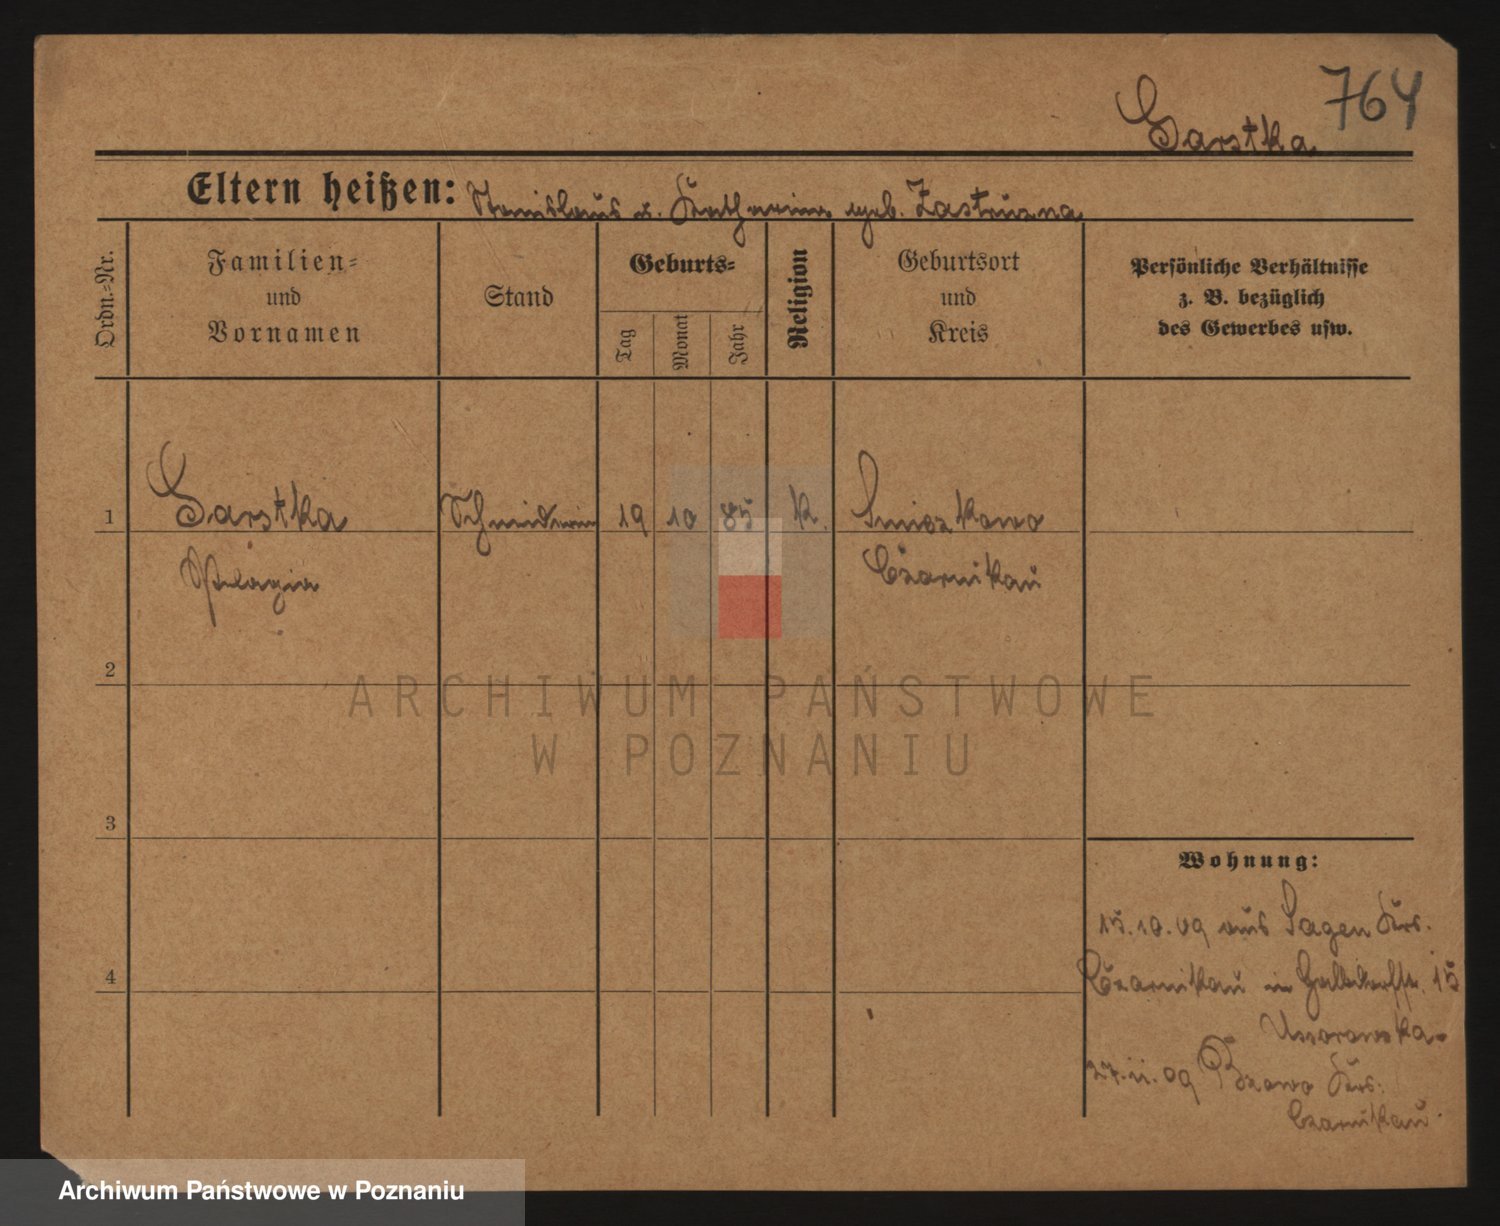 764
Garstka
Eltern heißen: Stanislaus u. Katharina geb. Zastruzna
Ordn.-Nr.
Familien-
und
Vornamen
Stand
Geburts-
Tag
Monat
Jahr
Religion
Geburtsort
und
Kreis
Persönliche Verhältnisse
z. B. bezüglich
des Gewerbes usw.
1
Garstka Schneiderin 19 10 85 K. Smieszkowo
Pelagia Czarnikau
2
3
4
Wohnung:
15.10.09 aus Sagen Krs.
Czarnikau in 15
27.11.09 Krs.
Czarnikau
ARCHIWUM PAŃSTWOWE
W POZNANIU
Archiwum Państwowe w Poznaniu